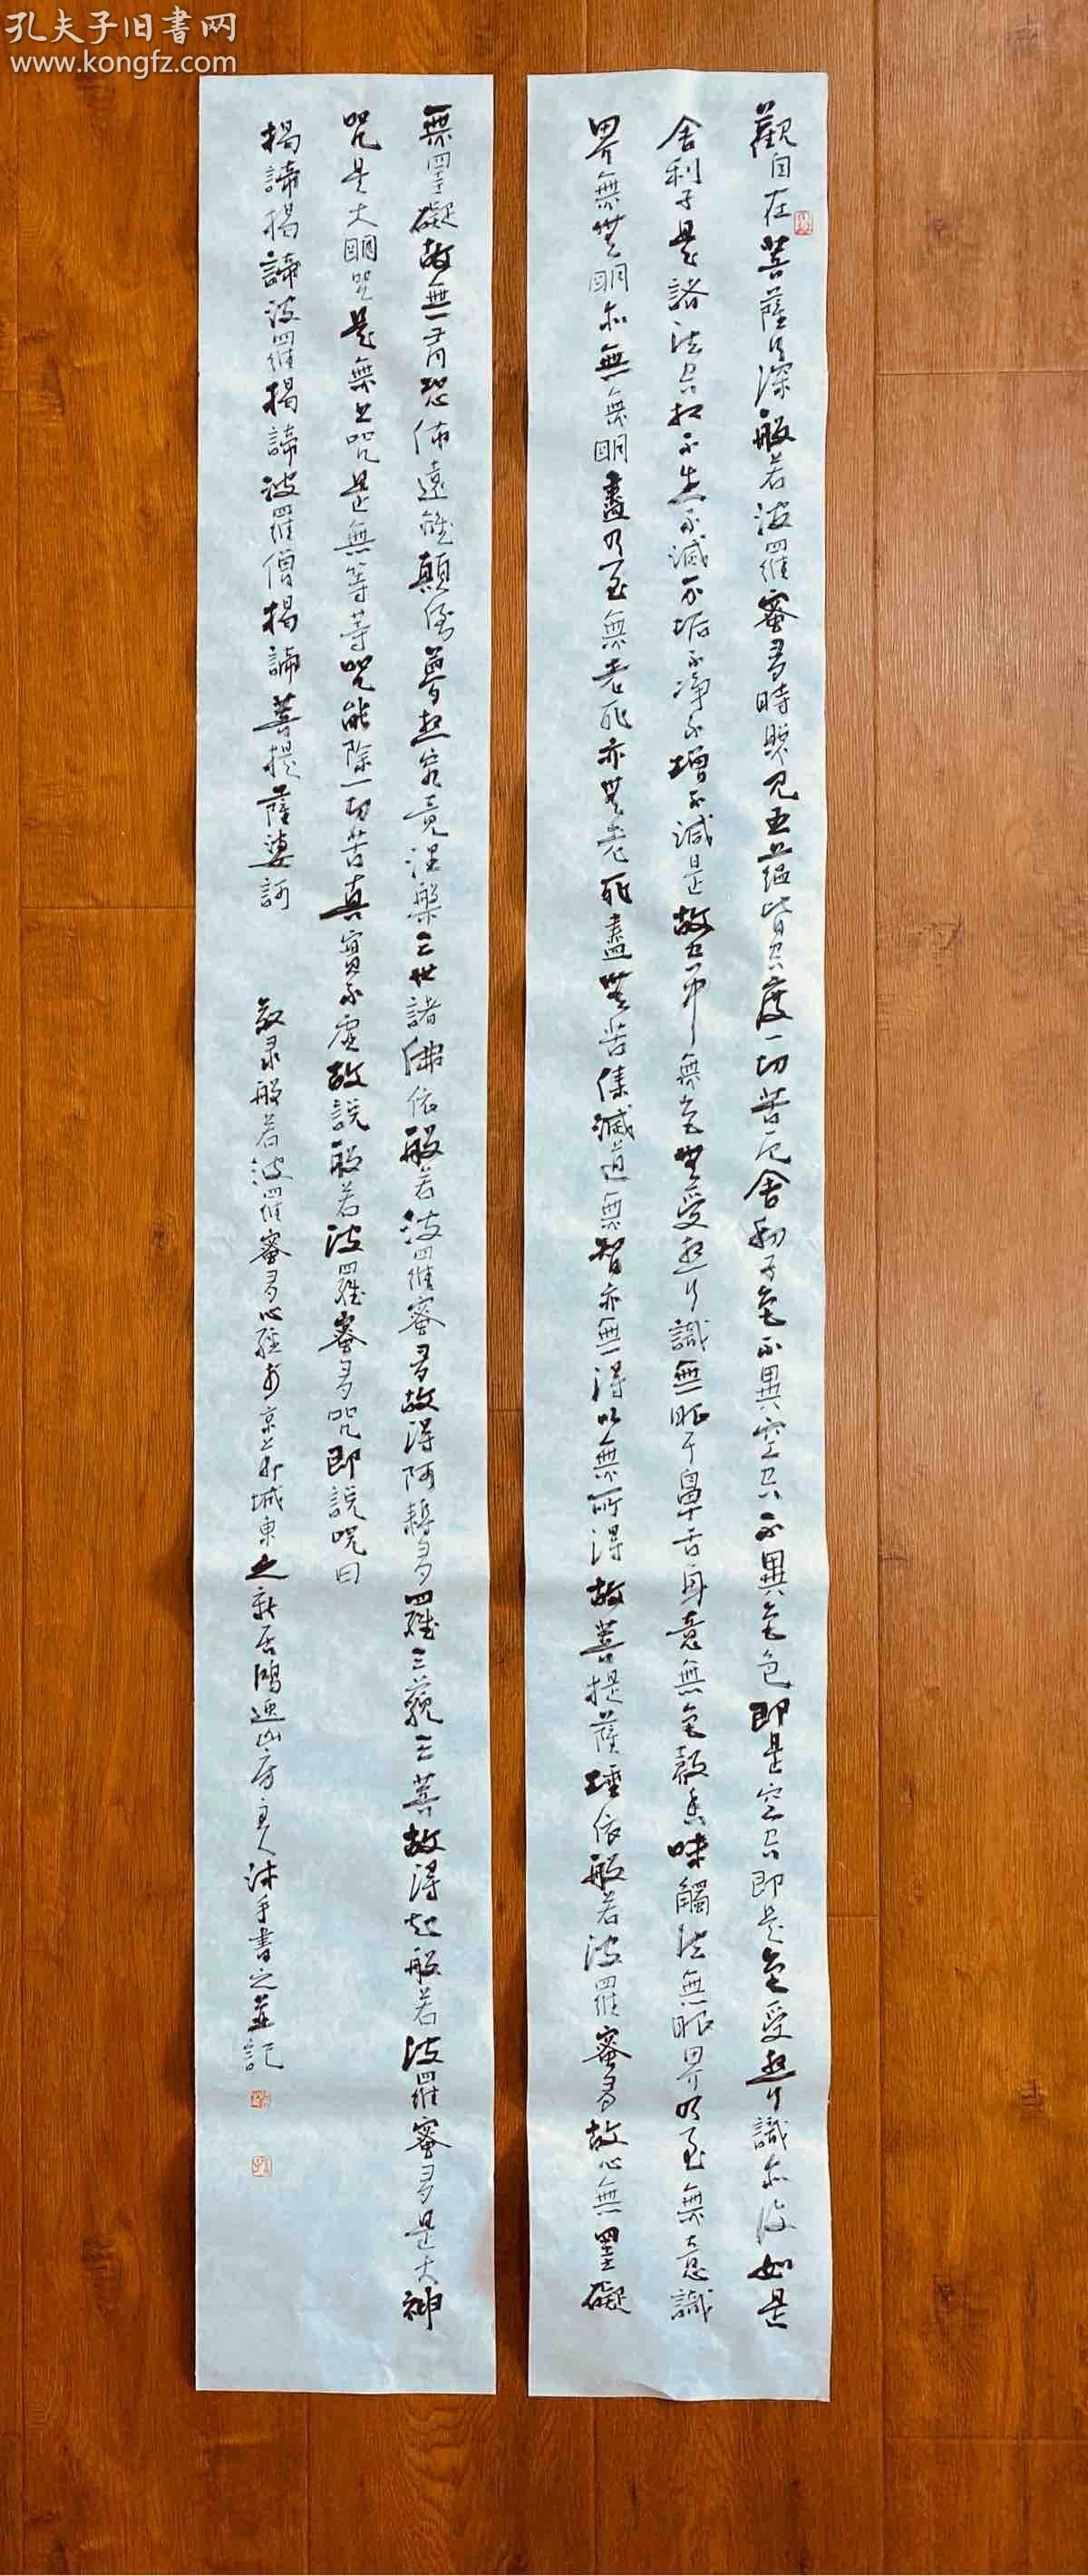 孔夫子旧书网
www.kongfz.com
觀自在菩薩行深般若波羅蜜多時照見五蘊皆空度一切苦厄舍利子色不異空空不異色色即是空空即是色受想行識亦復如是
舍利子是諸法空相不生不滅不垢不淨不增不減是故空中無色無受想行識無眼耳鼻舌身意無色聲香味觸法無眼界乃至無意識
界無無明亦無無明盡乃至無老死亦無老死盡無苦集滅道無智亦無得以無所得故菩提薩埵依般若波羅蜜多故心無罣礙
無罣礙故無有恐怖遠離顛倒夢想究竟涅槃三世諸佛依般若波羅蜜多故得阿耨多羅三藐三菩故得知般若波羅蜜多是大神
咒是大明咒是無上咒是無等等咒能除一切苦真實不虛故說般若波羅蜜多咒即說咒曰
揭諦揭諦波羅揭諦波羅僧揭諦菩提薩婆訶
敬录般若波羅蜜多心經於京北城東之新居鴻運山房主人沐手書之並記